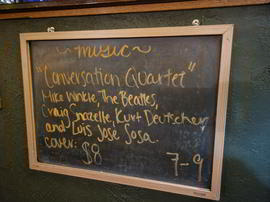 ~ music ~
"Conversation Quartet"
Mike Winkle, The Beatles,
Craig Snazelle, Kurt Deutscher,
and Luis Jose Sosa.
cover: $8
7-9